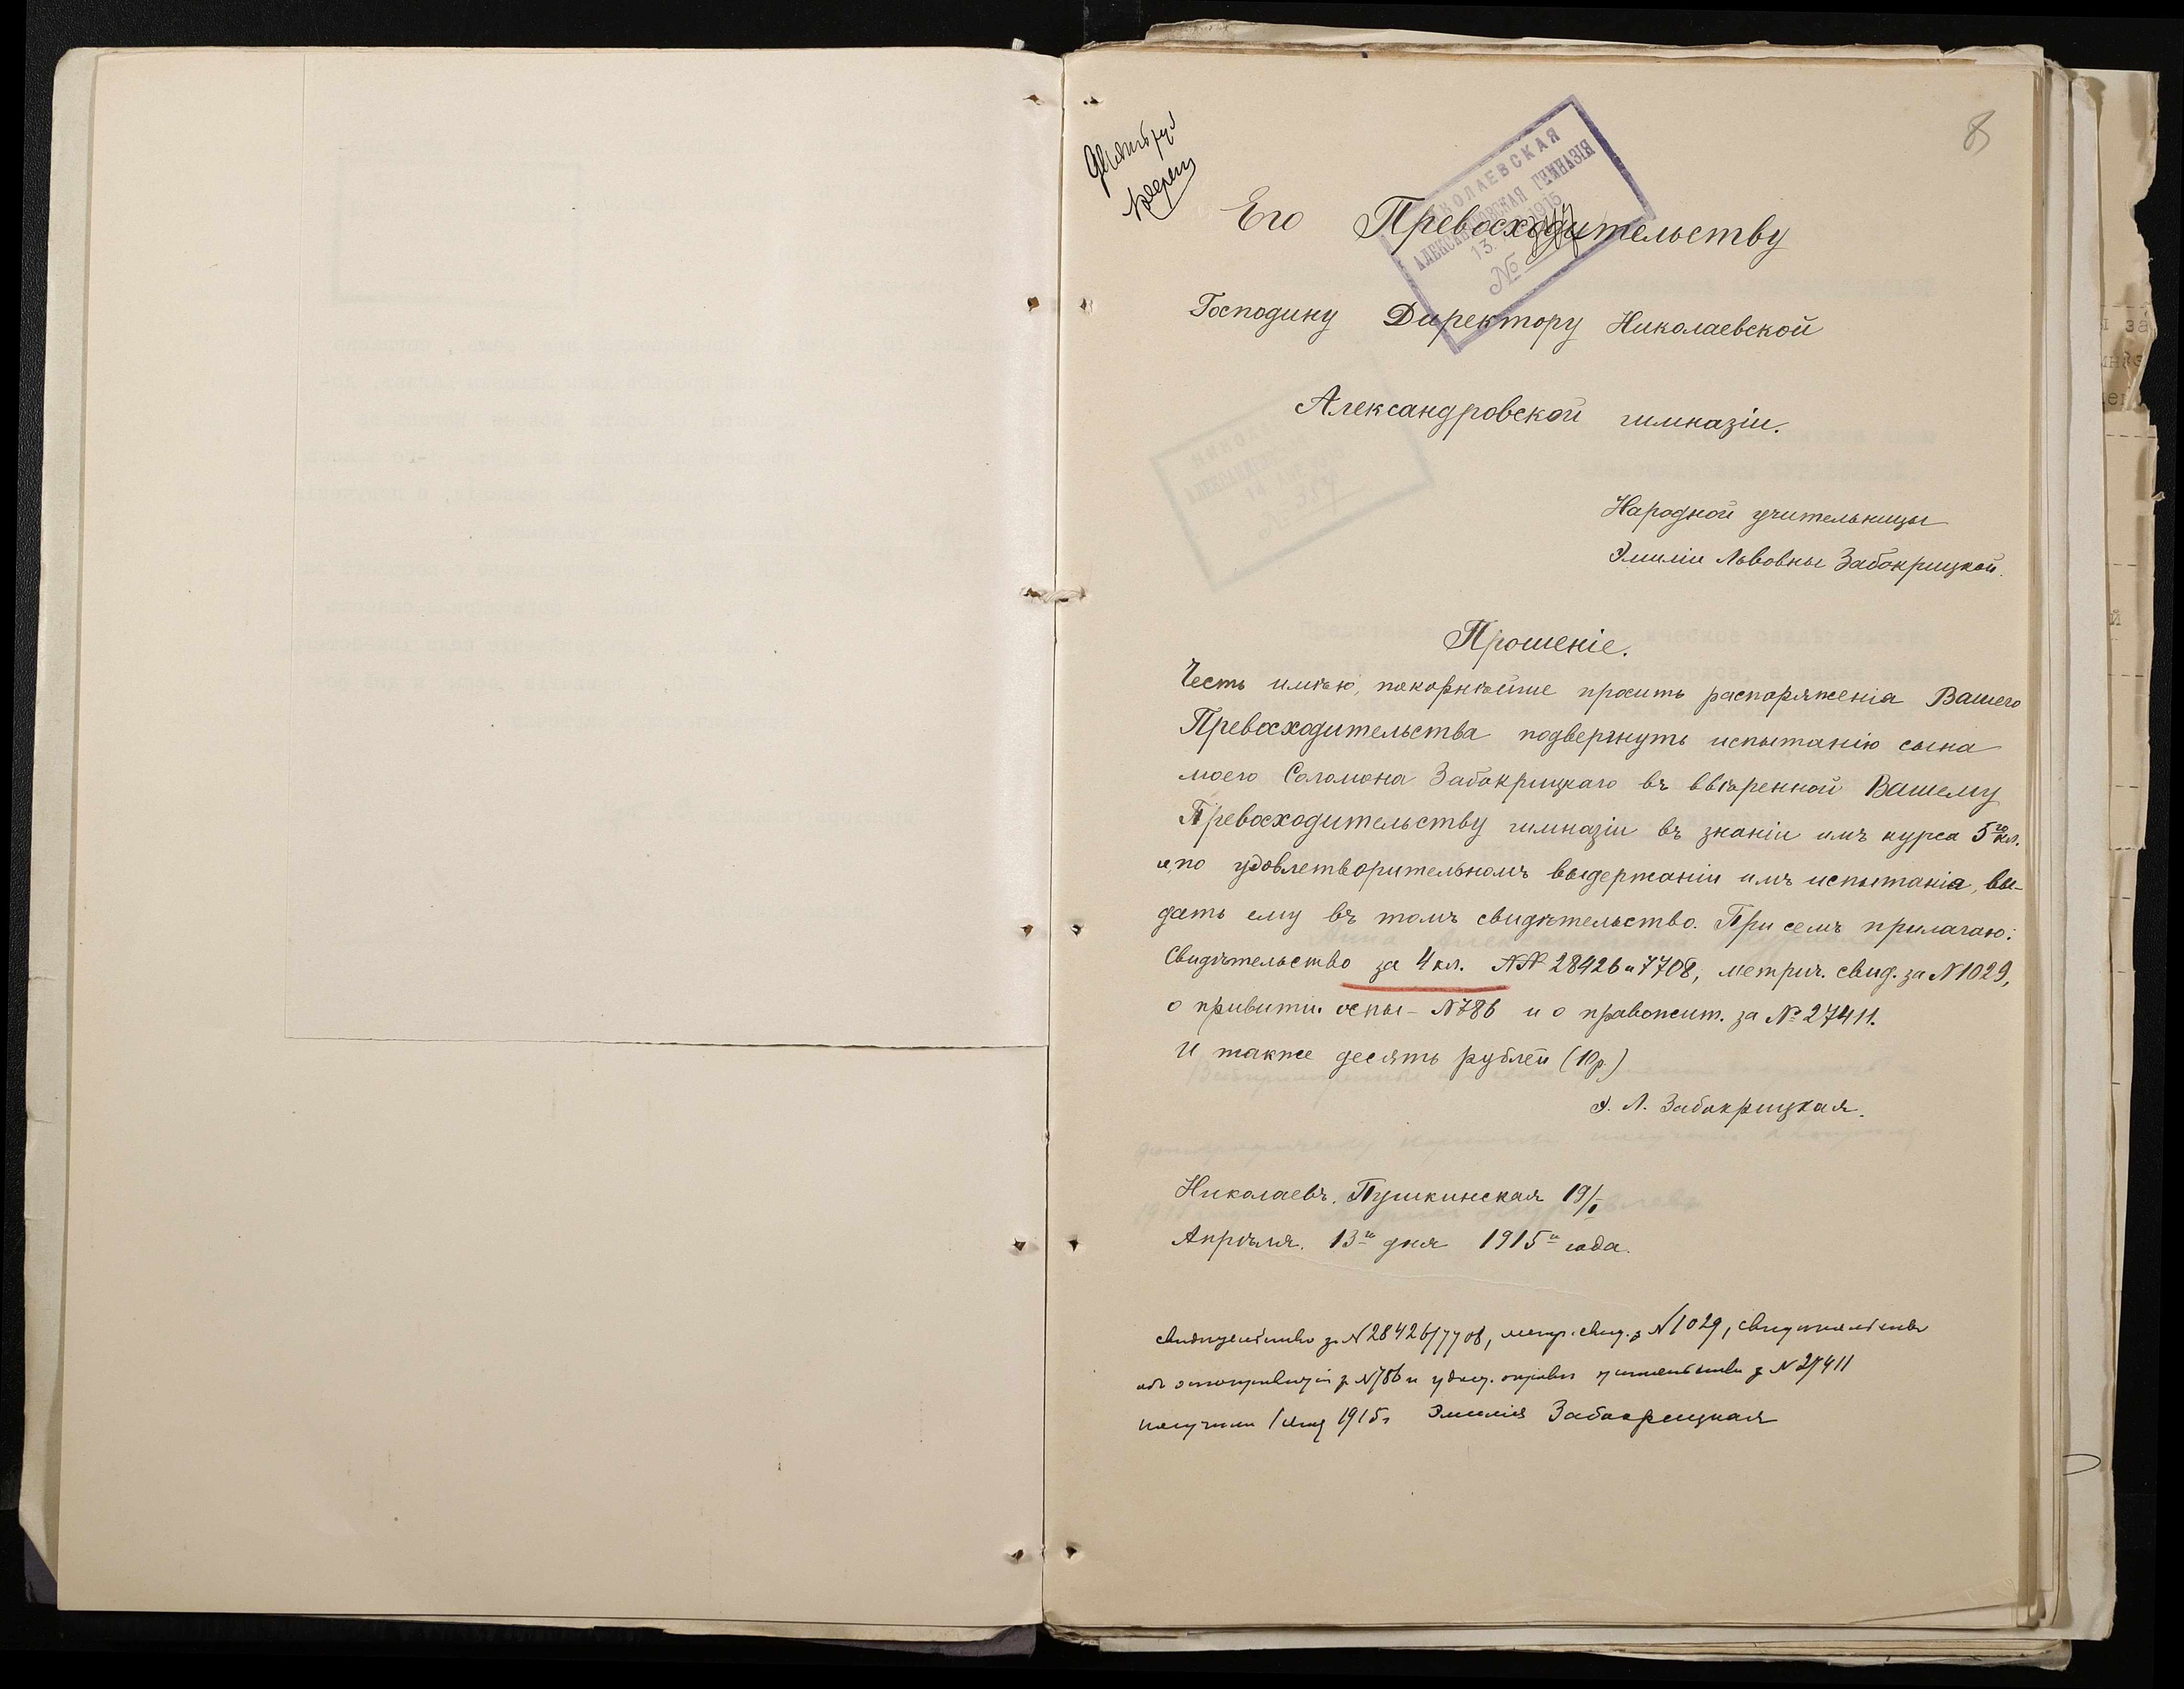 8
НИКОЛАЕВСКАЯ
АЛЕКСАНДРОВСКАЯ ГИМНАЗІЯ
13. 1915
№
Его Превосходительству
Господину Директору Николаевской
Александровской гимназіи.
Народной учительницы
Эмиліи Львовны Забокрицкой.
Прошеніе.
Честь имѣю, покорнѣйше просить распоряженія Вашего
Превосходительства подвергнуть испытанію сына
моего Соломона Забокрицкаго въ ввѣренной Вашему
Превосходительству гимназіи въ знаніи имъ курса 5го кл.
и, по удовлетворительномъ выдержаніи имъ испытанія, вы-
дать ему въ томъ свидѣтельство. При семъ прилагаю:
Свидѣтельство за 4 кл. №№ 28426 и 7708, метрич. свид. за № 1029,
о привитіи оспы - № 786 и о правожит. за № 27411.
И также десять рублей (10 р.)
Э. Л. Забокрицкая.
Николаевъ. Пушкинская 19/
Апрѣля. 13го дня 1915го года.
свидѣтельство за № 28426/7708, метр. свид. за № 1029, свидѣтельство
объ оспопрививаніи за № 786 и за № 27411
получила 1 мая 1915 г. Эмилія Забокрицкая